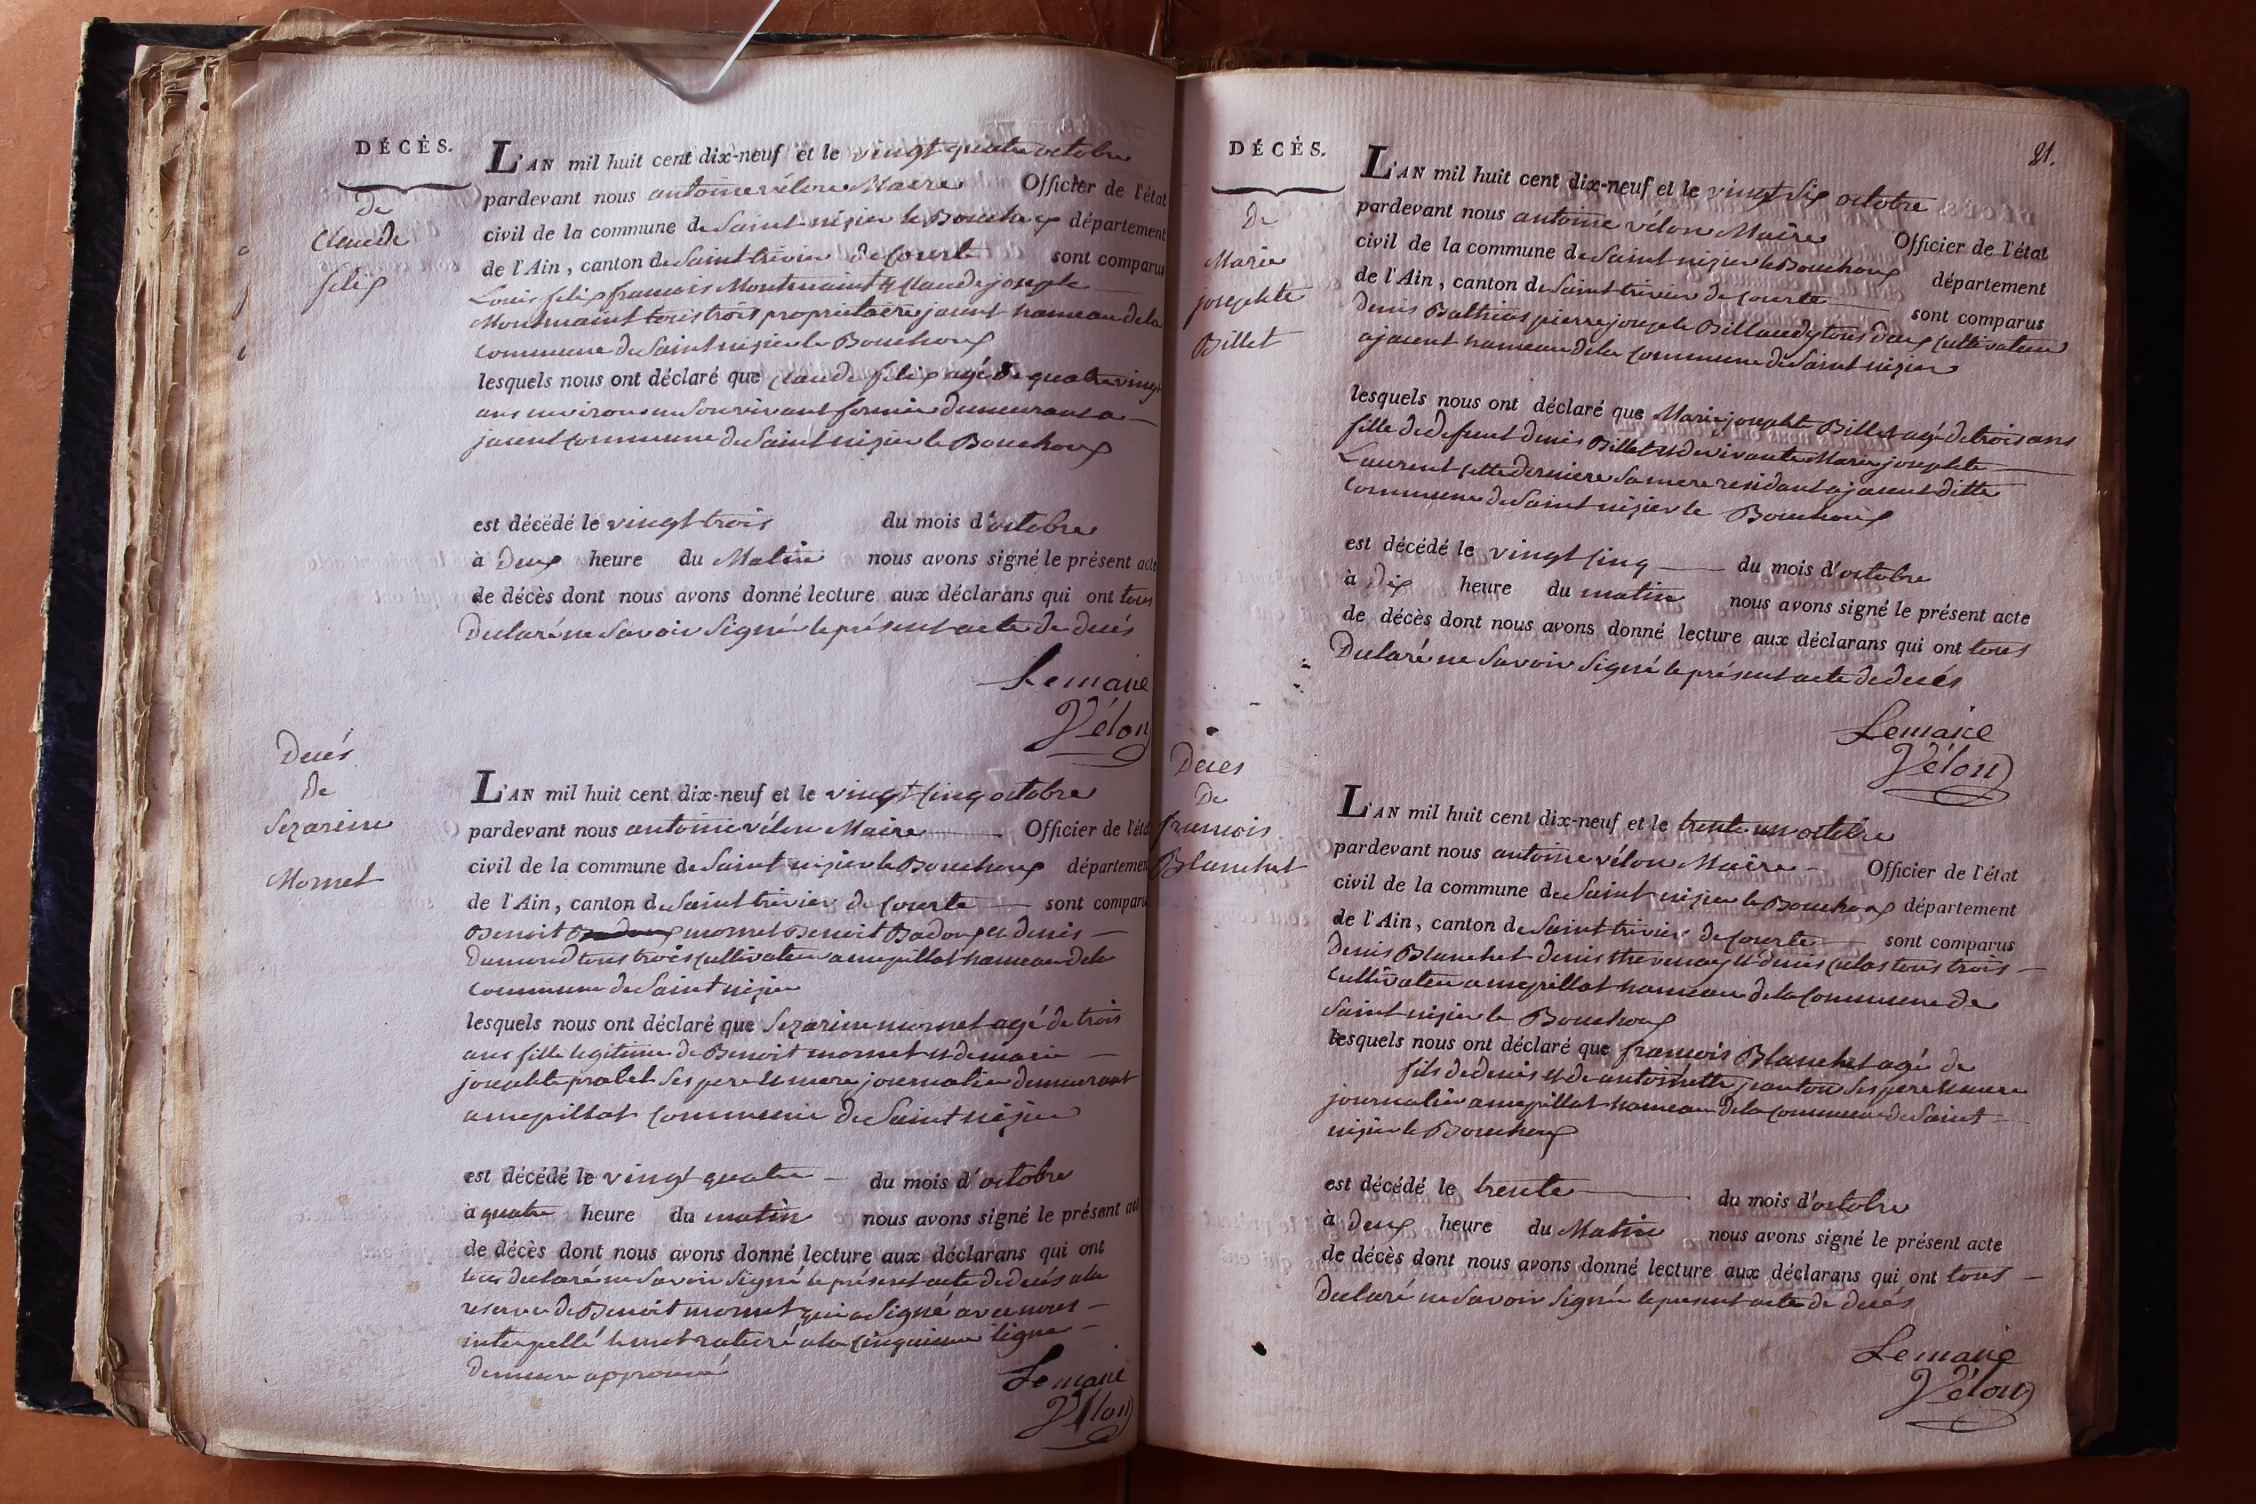 DÉCÈS.
de
Claude
felix
L'AN mil huit cent dix-neuf et le vingt quatre octobre
pardevant nous antoine vélon Maire Officier de l'état
civil de la commune de Saint nizier le Bouchoux département
de l'Ain, canton de Saint trivier de Courte sont comparus
Louis felix francois Montmaint et Claude joseph
Montmaint tous trois proprietaire jacent hameau de la
commune de Saint nizier le Bouchoux
lesquels nous ont déclaré que Claude felix agé de quatre vingt
ans environ en Son vivant fermier demeurant a
jacent commune de Saint nizier le Bouchoux
est décédé le vingt trois du mois d'octobre
à Deux heure du Matin nous avons signé le présent acte
de décès dont nous avons donné lecture aux déclarans qui ont tous
Declaré ne Savoir Signé le présent acte de decés
Le maire
Vélon
Decés
de
Sezarine
Mornet
L'AN mil huit cent dix-neuf et le vingt cinq octobre
pardevant nous antoine vélon Maire Officier de l'état
civil de la commune de Saint nizier le Bouchoux département
de l'Ain, canton de Saint trivier de Courte sont comparus
Benoit mornet Benoit Badoux et denis
Dumond tous trois cultivateur a mepillat hameau de la
commune de Saint nizier
lesquels nous ont déclaré que Sezarine mornet agé de trois
ans fille legitime de Benoit mornet et de marie
josephte prabel Ses pere et mere journalier demeurant
a mepillat commune de Saint nizier
est décédé le vingt quatre du mois d'octobre
à quatre heure du matin nous avons signé le présent acte
de décès dont nous avons donné lecture aux déclarans qui ont
tous declaré ne Savoir Signé le présent acte de decés a la
reserve de Benoit mornet qui a Signé avec nous
interpellé le mot raturé a la cinquieme ligne
demeure approuvé
Le maire
Vélon
21.
DÉCÈS.
De
Marie
josephte
Billet
L'AN mil huit cent dix-neuf et le vingt Six octobre
pardevant nous antoine vélon Maire Officier de l'état
civil de la commune de Saint nizier le Bouchoux département
de l'Ain, canton de Saint trivier de Courte sont comparus
denis Bathias pierre joseph Billaudy tous deux cultivateur
a jacent hameau de la commune de Saint nizier
lesquels nous ont déclaré que Marie josepht Billet agé de trois ans
fille de defunt denis Billet et de vivante Marie josephte
Laurent cette derniere Sa mere residant a jacent ditte
commune de Saint nizier le Bouchoux
est décédé le vingt cinq du mois d'octobre
à dix heure du matin nous avons signé le présent acte
de décès dont nous avons donné lecture aux déclarans qui ont tous
Declaré ne Savoir Signé le présent acte de decés
Le maire
Vélon
Deces
De
francois
Blanchet
L'AN mil huit cent dix-neuf et le trente un octobre
pardevant nous antoine vélon Maire Officier de l'état
civil de la commune de Saint nizier le Bouchoux département
de l'Ain, canton de Saint trivier de Courte sont comparus
denis Blanchet denis thevenay et denis culas tous trois
cultivateur a mepillat hameau de la commune de
Saint nizier le Bouchoux
lesquels nous ont déclaré que francois Blanchet agé de
fils de denis et de antoinette panton Ses pere et mere
journalier a mepillat hameau de la commune de Saint
nizier le Bouchoux
est décédé le trente du mois d'octobre
à Deux heure du Matin nous avons signé le présent acte
de décès dont nous avons donné lecture aux déclarans qui ont tous
Declaré ne Savoir Signé le present acte de decés
Le maire
Vélon